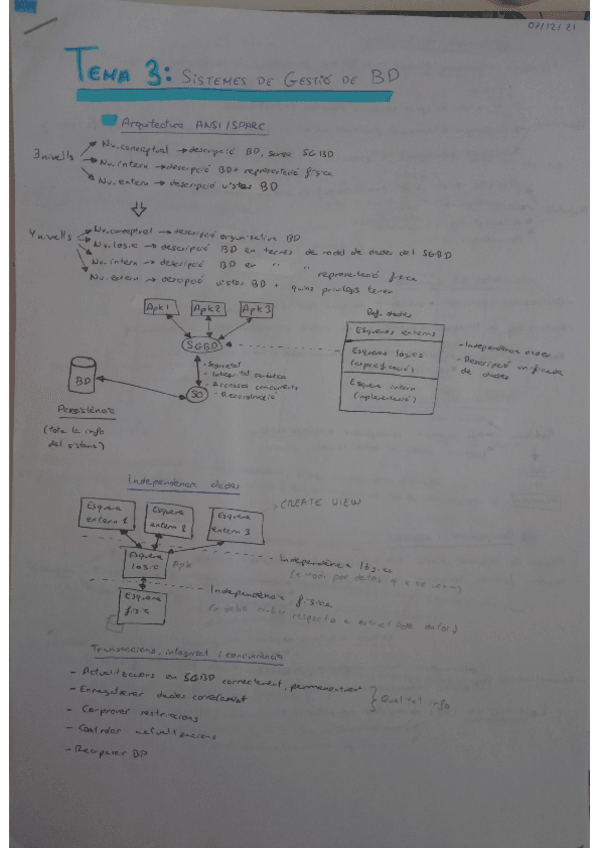 07/12/21
TEMA 3: SISTEMES DE GESTIÓ DE BD
Arquitectura ANSI/SPARC
3 nivells
Nv. conceptual → descripció BD, sense SGBD
Nv. intern → descripció BD + representació física
Nv. extern → descripció vistes BD
4 nivells
Nv. conceptual → descripció organitzativa BD
Nv. lògic → descripció BD en termes de model de dades del SGBD
Nv. intern → descripció BD en " " representació física
Nv. extern → descripció vistes BD + quins privilegis tenen
Apk 1
Apk 2
Apk 3
SGBD
- Seguretat
- Integritat
- Accessos concurrents
- Recuperació
SO
BD
Persistència
(tota la info
del sistema)
Def. dades
Esquemes externs
Esquemes lògics
(especificació)
Esquema intern
(implementació)
- Independència dades
- Descripció unificada
de dades
Independència dades
Esquema
extern 1
Esquema
extern 2
Esquema
extern 3
CREATE VIEW
Esquema
lògic
Apk
Independència lògica
Esquema
físic
Independència física
Transaccions, integritat i concurrència
- Actualitzacions en SGBD correctament, permanentment
- Enregistrar dades correctament
} Qualitat info
- Comprovar restriccions
- Controlar actualitzacions
- Recuperar BD